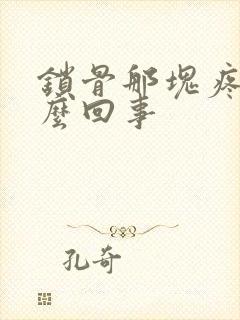 鎖骨那塊疼
麼回事
孔奇